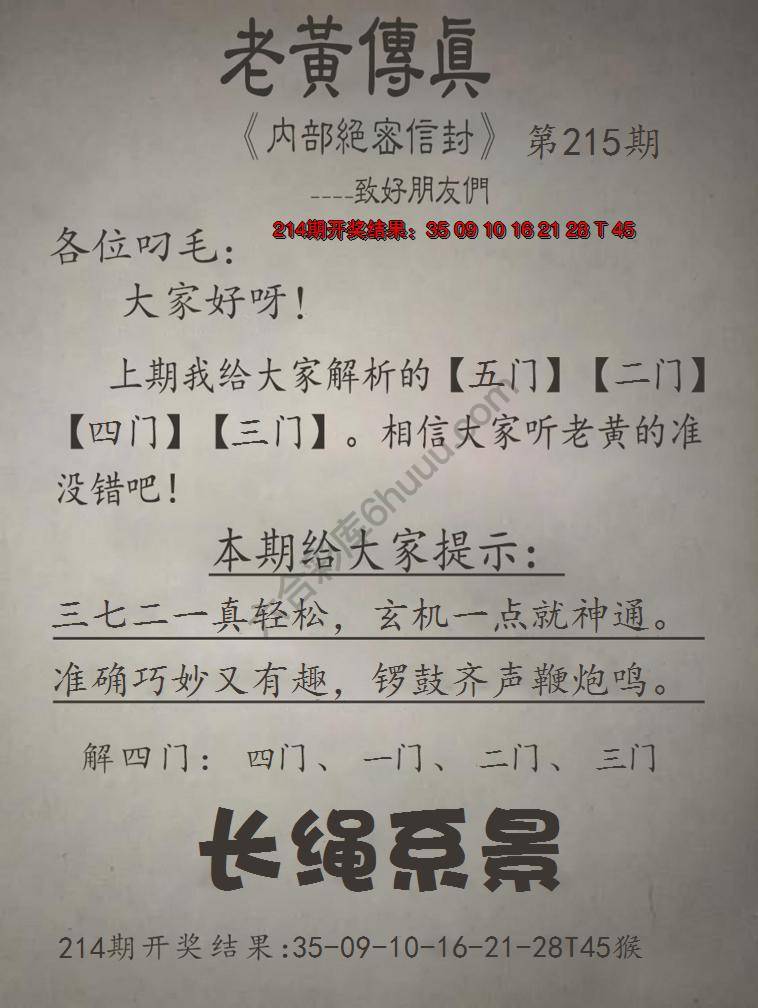 老黃傳眞
《内部絕密信封》 第215期
----致好朋友們
214期开奖结果：35 09 10 16 21 28 T 45
各位叼毛：
大家好呀！
上期我给大家解析的【五门】【二门】
【四门】【三门】。相信大家听老黄的准
没错吧！
六合彩库6huuu.com
本期给大家提示：
三七二一真轻松，玄机一点就神通。
准确巧妙又有趣，锣鼓齐声鞭炮鸣。
解四门：四门、一门、二门、三门
长绳系景
214期开奖结果:35-09-10-16-21-28T45猴